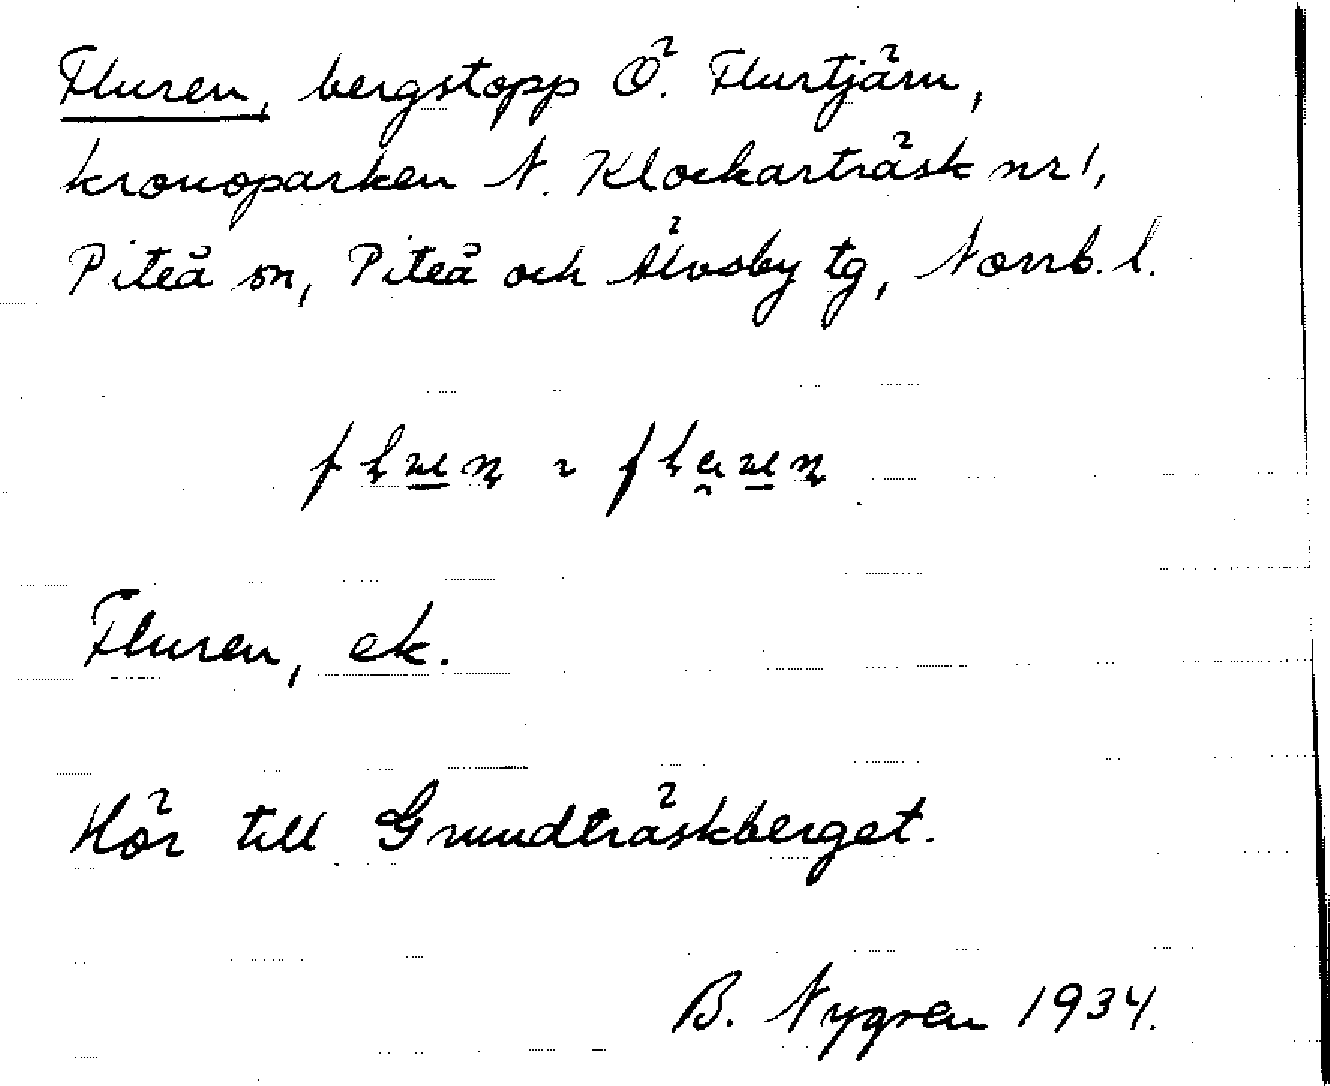 Fluren, bergstopp Ö. Flurtjärn,
kronoparken N. Klockarträsk nr 1,
Piteå sn, Piteå och Älvsby tg, Norrb. l.
Fluren, ek.
Hör till Grundträskberget.
B. Nygren 1934.